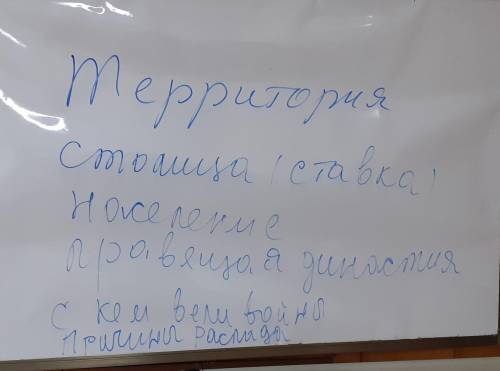 Территория
столица (ставка)
Население
правящая династия
с кем вели войны
причины распада